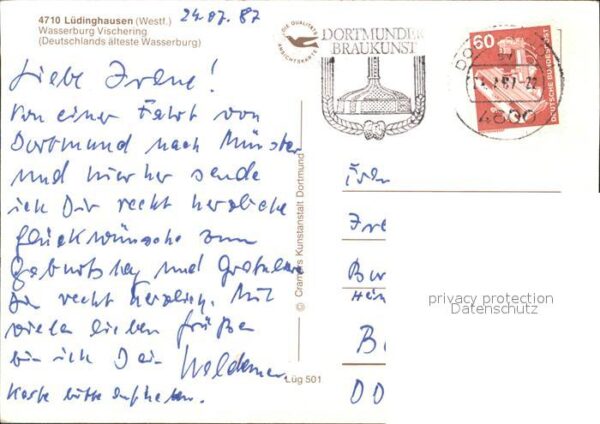 24.07.87
4710 Lüdinghausen (Westf.)
Wasserburg Vischering
(Deutschlands älteste Wasserburg)
DIE QUALITÄTS
ANSICHTSKARTE
DORTMUNDER
BRAUKUNST
60
DEUTSCHE BUNDESPOST
4600
Liebe Irene!
Von einer Fahrt von
Dortmund nach Münster
und hierher sende
ich Dir recht herzliche
Glückwünsche zum
Geburtstag und Gratuliere
Dir recht herzlich. Mit
vielen lieben Grüßen
bin ich Dein Waldemar
Karte bitte aufheben.
© Cramers Kunstanstalt Dortmund
Lüg 501
Irе
Bu
B
DO
privacy protection
Datenschutz